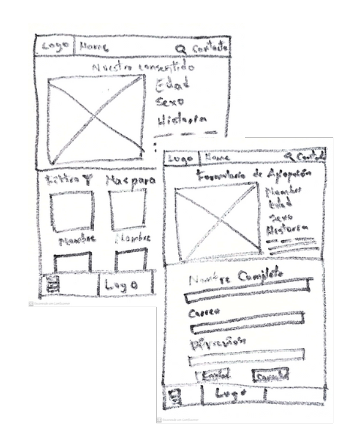 Logo Home Contacto
Nuestro consentido
Edad
Sexo
Historia
Mas para
Nombre Nombre
Logo
Logo Home Contacto
Formulario de Adopción
Nombre
Edad
Sexo
Historia
Nombre Completo
Correo
Dirección
Enviar Cancelar
Logo